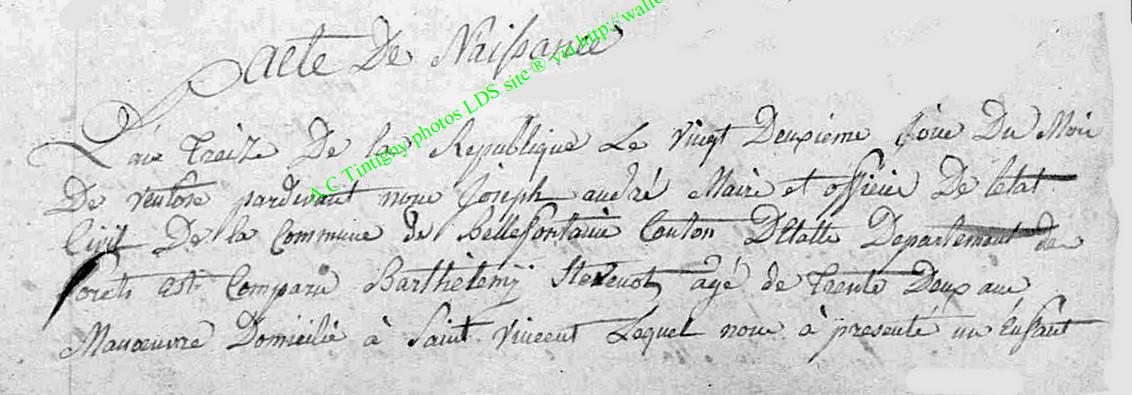 acte De Naissance
L'an treize De la Republique Le vingt Deuxieme Jour Du Mois
De ventose pardevant nous Joseph andré Maire et officier De létat
Civil De la Commune de Bellefontaine Canton Détalle Departement de
forets est Comparu Barthélemy Stevenot agé de trente Deux ans
Manoeuvre Domicilié à Saint Vincent Lequel nous à presenté un Enfant
A.C Tintigny photos LDS site ® via http://wallo